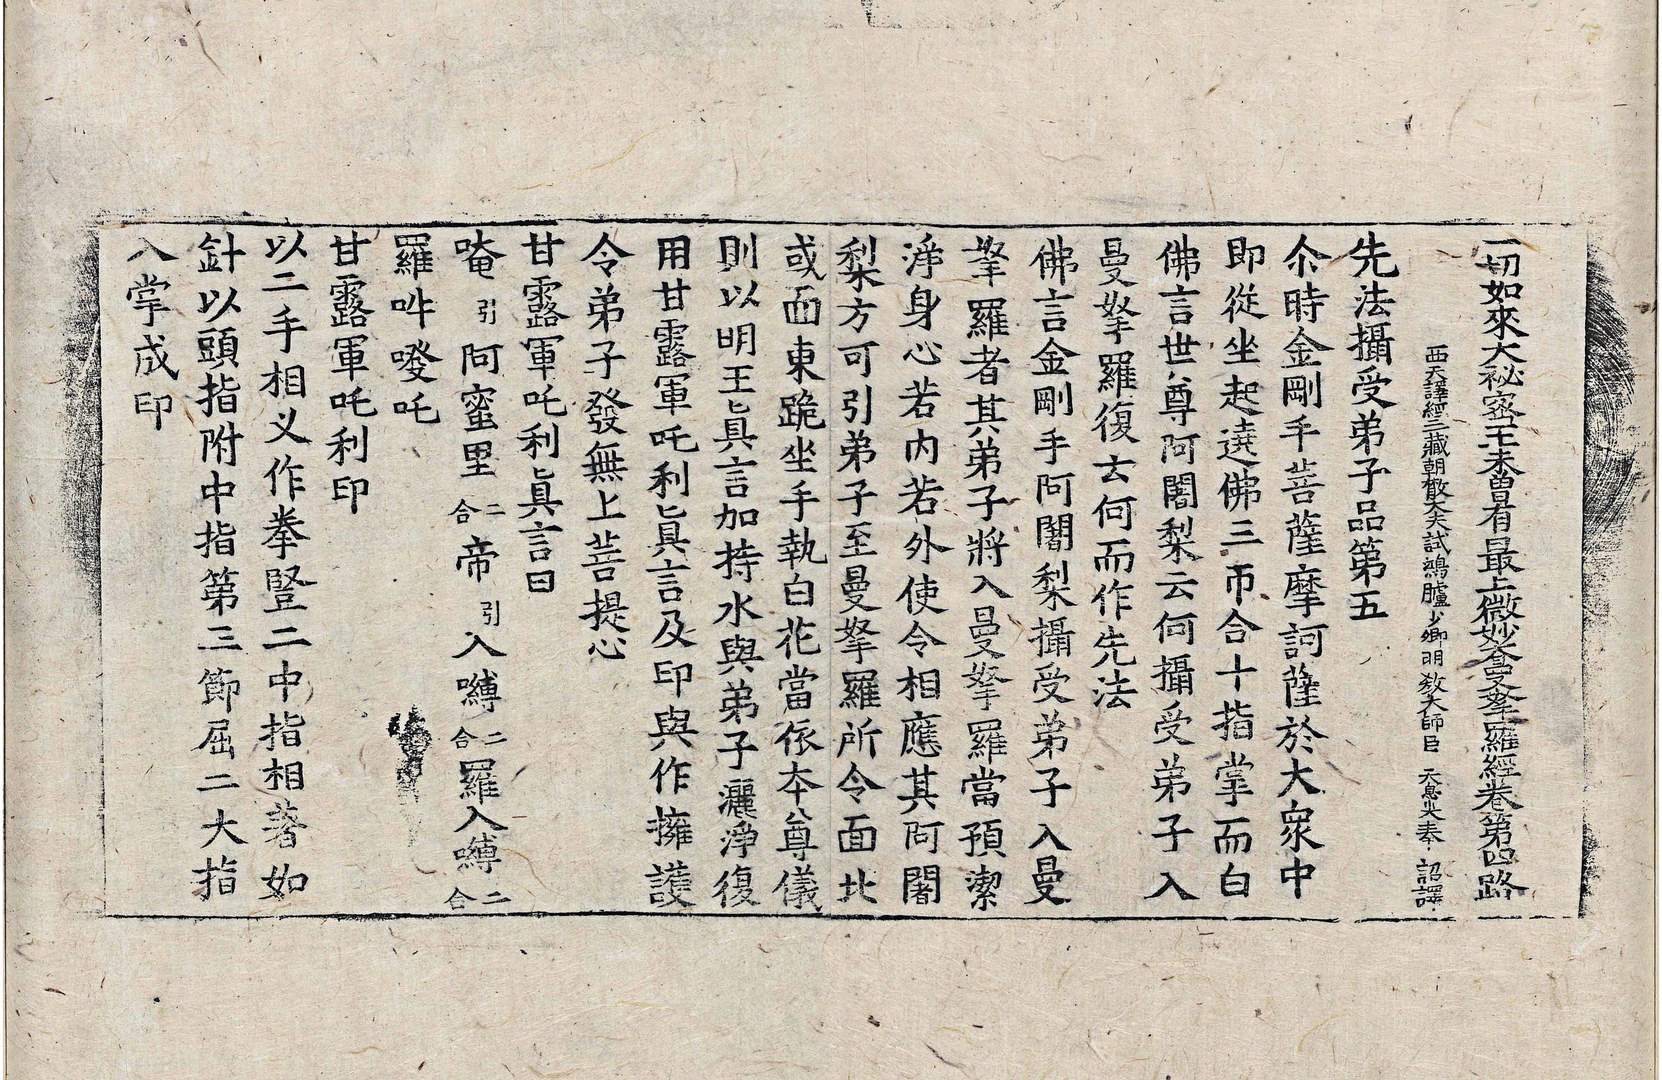 一切如來大祕密王未曾有最上微妙大曼拏羅經卷第四 路
西天譯經三藏朝散大夫試鴻臚少卿明教大師臣 天息災奉 詔譯
先法攝受弟子品第五
尒時金剛手菩薩摩訶薩於大衆中
即從坐起遶佛三帀合十指掌而白
佛言世尊阿闍梨云何攝受弟子入
曼拏羅復云何而作先法
佛言金剛手阿闍梨攝受弟子入曼
拏羅者其弟子將入曼拏羅當預潔
淨身心若内若外使令相應其阿闍
梨方可引弟子至曼拏羅所令面北
或面東跪坐手執白花當依本尊儀
則以明王眞言加持水與弟子灑淨復
用甘露軍吒利眞言及印與作擁護
令弟子發無上菩提心
甘露軍吒利眞言曰
唵 引 阿蜜里 二合 帝 引 入嚩 二合 羅入嚩 二合
羅吽𠺁吒
甘露軍吒利印
以二手相叉作拳竪二中指相著如
針以頭指附中指第三節屈二大指
入掌成印